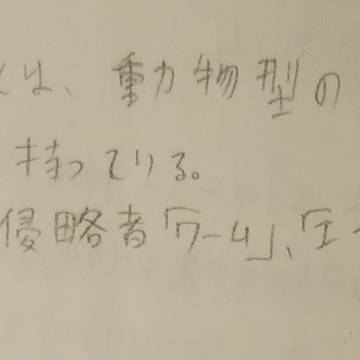 は、動物型の
持っている。
侵略者「ワーム」、「エ